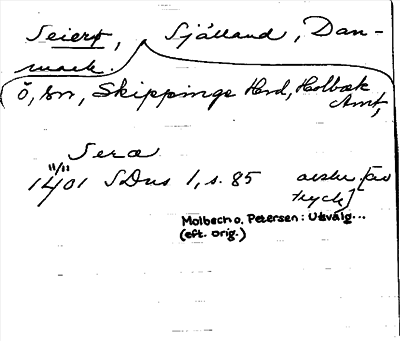 Seierø, Själland, Dan-
mark.
ö, sn, Skippinge Hrd, Holbæk
Amt,
Seræ
11/11
1401 SDns 1, s. 85 avskr. [av
tryck]
Molbech o. Petersen: Utvalg...
(eft. orig.)